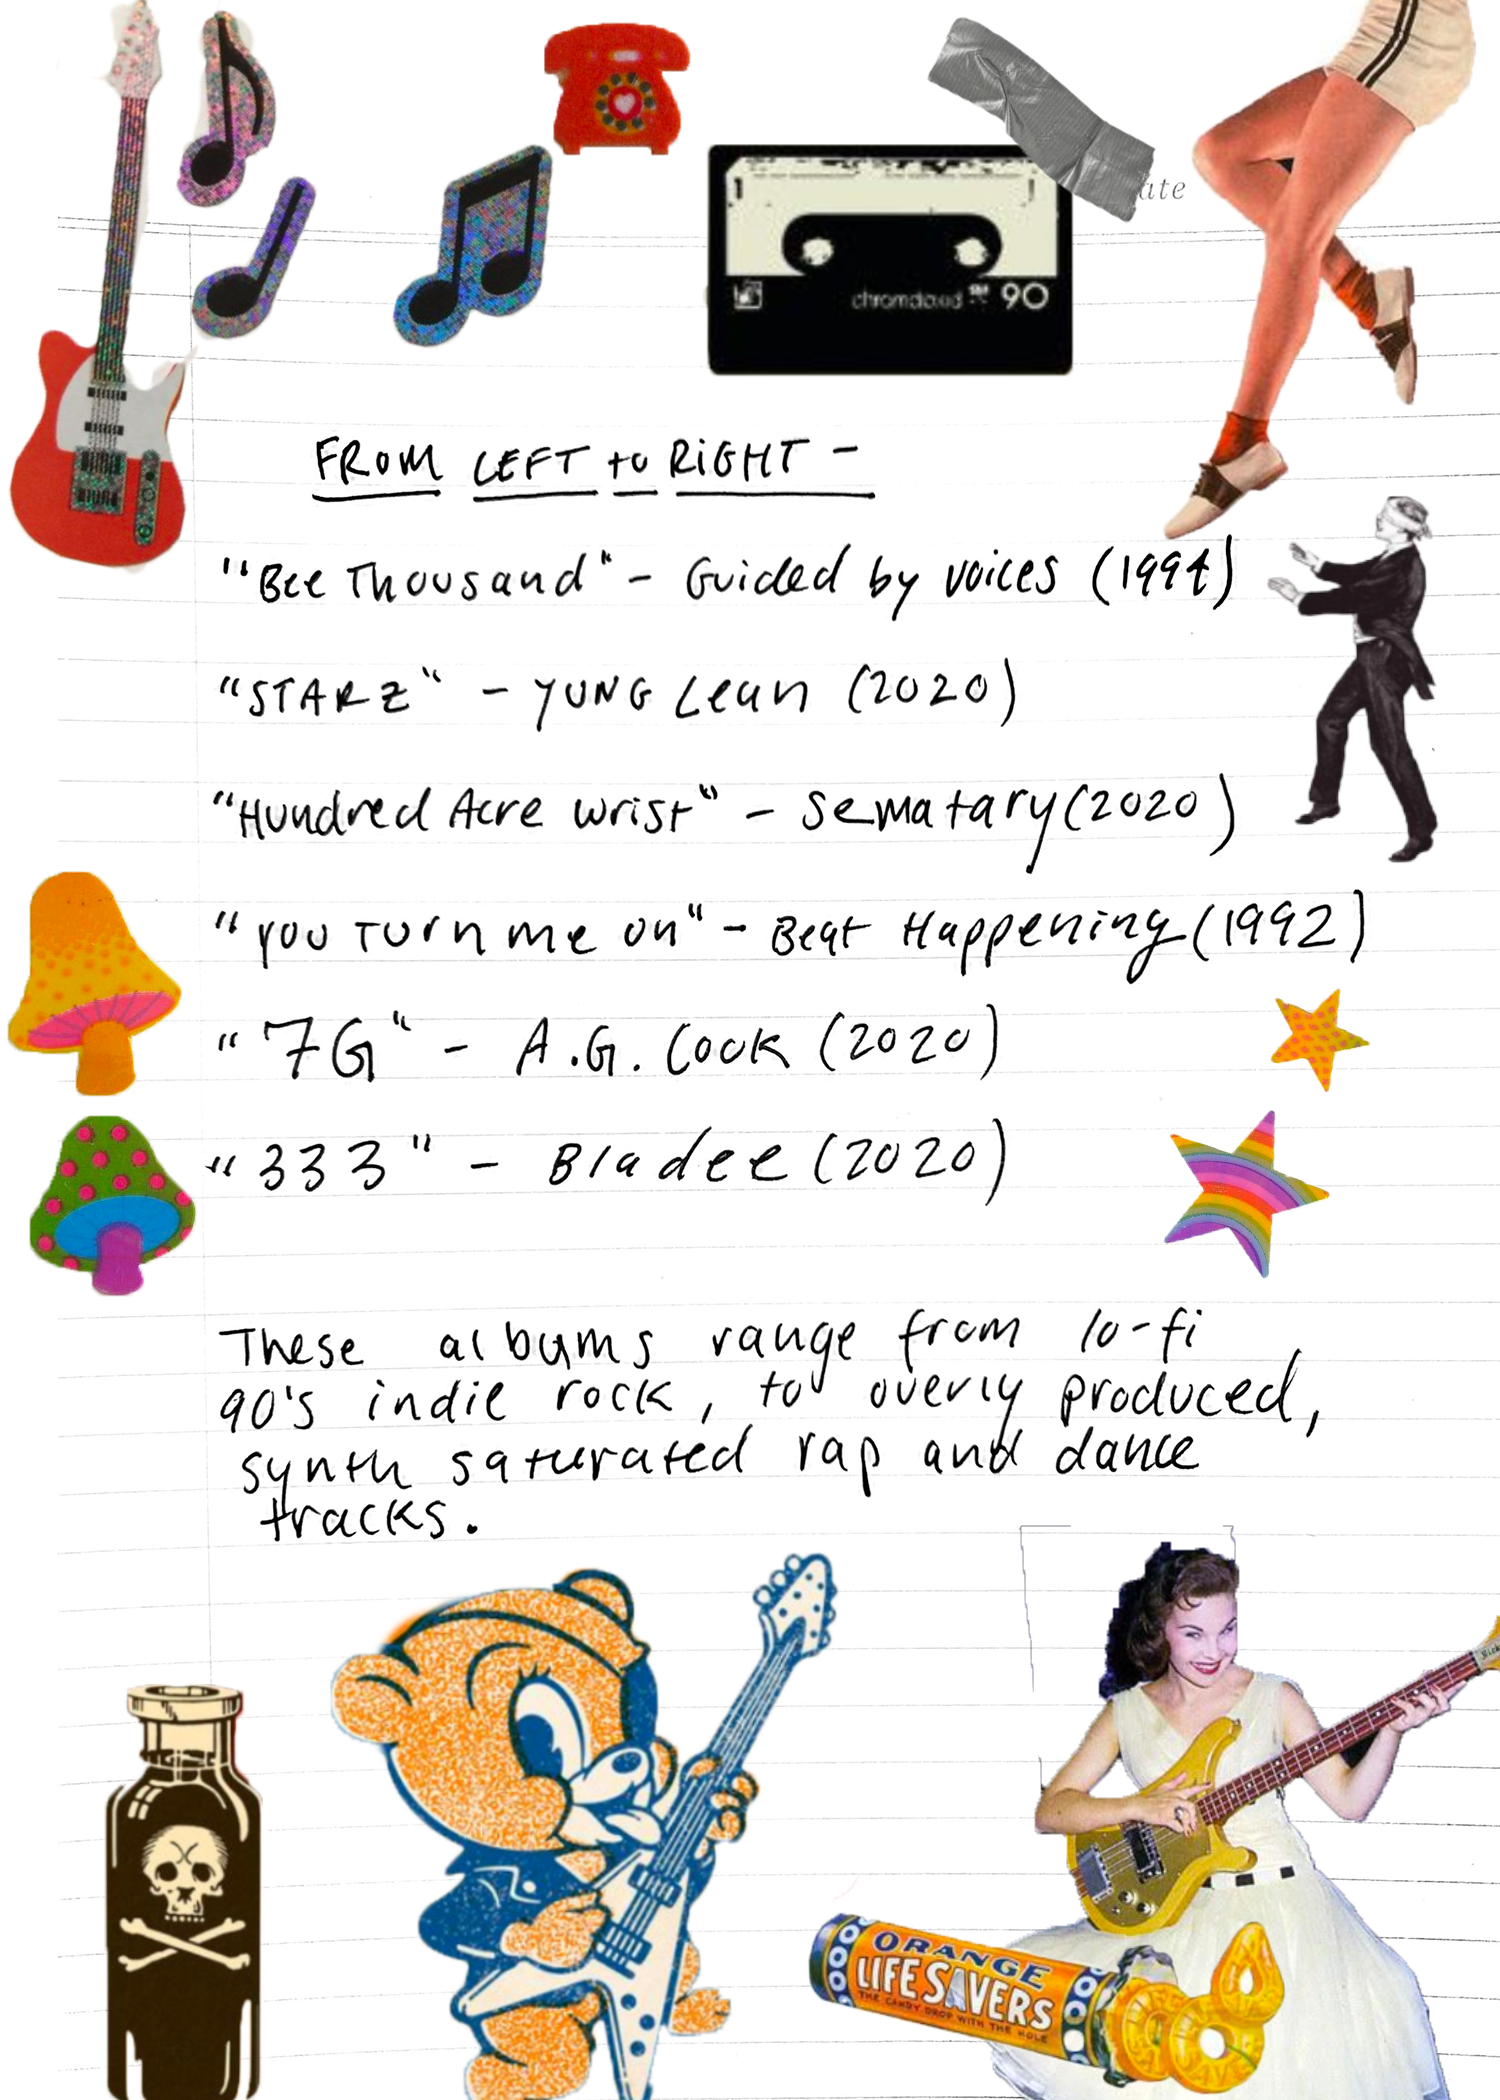 ate
chromdioxid 90
FROM LEFT to RiGHT -
"Bee Thousand" - Guided by voices (1994)
"STARZ" - YUNG Lean (2020)
"Hundred Acre wrist" - Sematary (2020)
"you Turn me on" - Beat Happening (1992)
"7G" - A.G. Cook (2020)
"333" - Bladee (2020)
These albums range from lo-fi
90's indie rock, to overly produced,
synth saturated rap and dance
tracks.
ORANGE
LIFE SAVERS
THE CANDY DROP WITH THE HOLE